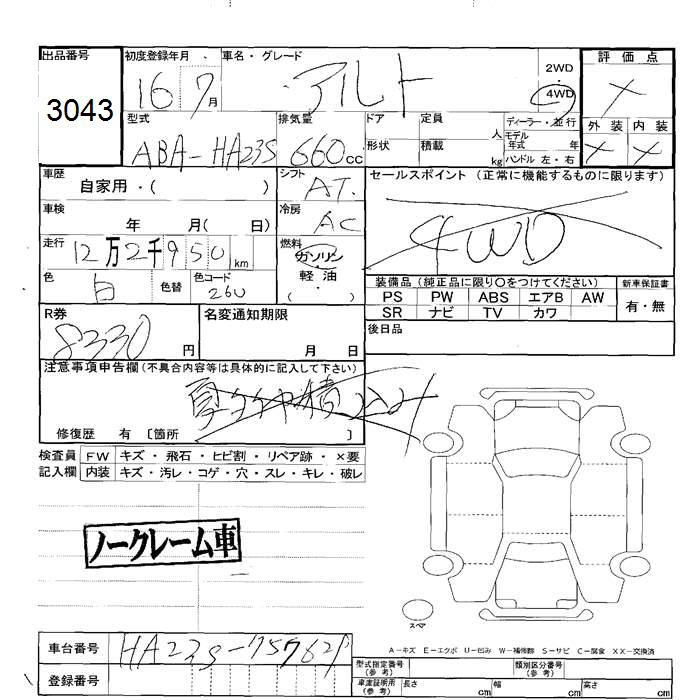 出品番号
3043
初度登録年月 16 7月
車名・グレード アルト
2WD
4WD
評価点
×
外装 内装
× ×
型式 ABA-HA23S
排気量 660cc
ドア 形状
定員 人
積載 kg
ディーラー・並行
モデル年式 年
ハンドル 左・右
車歴 自家用・( )
シフト AT
車検 年 月( 日)
冷房 AC
走行 12万2千950km
燃料 ガソリン
軽油
( ・ )
色 白 色替 色コード 26U
セールスポイント (正常に機能するものに限ります)
4WD
装備品 (純正品に限り〇をつけてください)
PS PW ABS エアB AW
SR ナビ TV カワ
新車保証書
有・無
後日品
R券 8330円
名変通知期限 月 日
注意事項申告欄 (不具合内容等は具体的に記入して下さい)
修復歴 有 〔箇所 〕
検査員記入欄
FW キズ・飛石・ヒビ割・リペア跡・×要
内装 キズ・汚レ・コゲ・穴・スレ・キレ・破レ
ノークレーム車
スペア
A-キズ E-エクボ U-凹み W-補修跡 S-サビ C-腐食 XX-交換済
車台番号 HA23S-
登録番号
型式指定番号(参考)
類別区分番号(参考)
車庫証明用(参考) 長さ cm 幅 cm 高さ cm